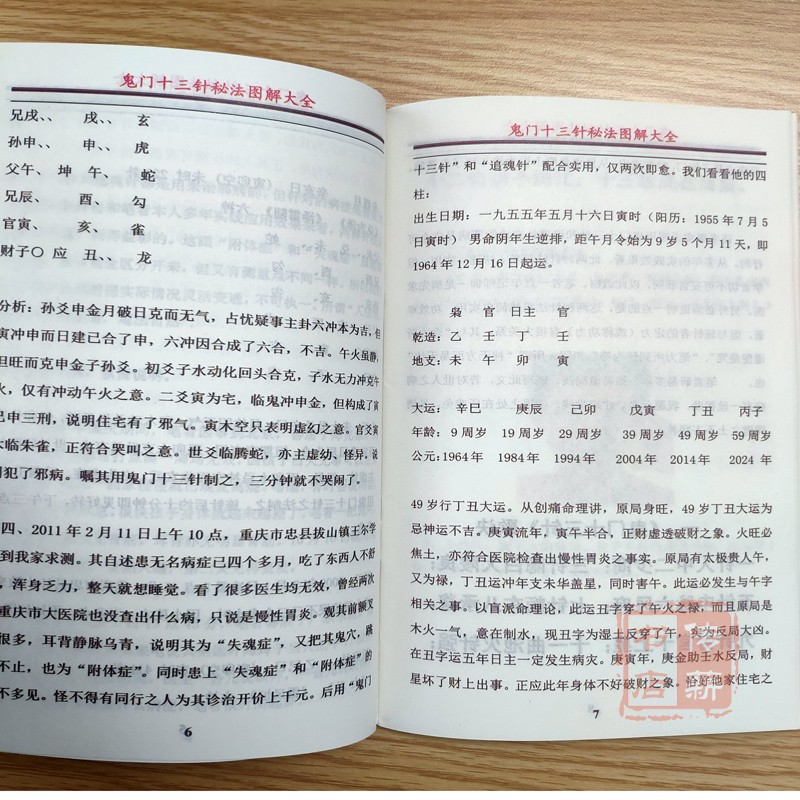 鬼门十三针秘法图解大全
兄戌、、 戌、、 玄
孙申、 申、、 虎
父午、 坤 午、、 蛇
兄辰、 酉、 勾
官寅、 亥、 雀
财子〇 应 丑、、 龙
分析：孙爻申金月破日克而无气，占忧疑事主卦六冲本为吉，但
寅冲申而日建已合了申，六冲因合成了六合，不吉。午火虽静，
但旺而克申金子孙爻。初爻子水动化回头合克，子水无力冲克午
火，仅有冲动午火之意。二爻寅为宅，临鬼冲申金，但构成了寅
巳申三刑，说明住宅有了邪气。寅木空只表明虚幻之意。官爻寅
木临朱雀，正符合哭叫之意。世爻临腾蛇，亦主虚幼、怪异，说
明犯了邪病。嘱其用鬼门十三针制之，三分钟就不哭闹了。
四、2011 年 2 月 11 日上午 10 点，重庆市忠县拔山镇王尔学
到我家求测。其自述患无名病症已四个多月，吃了东西人不舒
，浑身乏力，整天就想睡觉。看了很多医生均无效，曾经两次
重庆市大医院也没查出什么病，只说是慢性胃炎。观其前额又
很多，耳背静脉乌青，说明其为“失魂症”，又把其鬼穴，跳
不止，也为“附体症”。同时患上“失魂症”和“附体症”的
不多见。怪不得有同行之人为其诊治开价上千元。后用“鬼门
6
鬼门十三针秘法图解大全
十三针”和“追魂针”配合实用，仅两次即愈。我们看看他的四
柱：
出生日期：一九五五年五月十六日寅时（阳历：1955 年 7 月 5
日寅时） 男命阴年生逆排，距午月令始为 9 岁 5 个月 11 天，即
1964 年 12 月 16 日起运。
枭 官 日主 官
乾造：乙 壬 丁 壬
地支：未 午 卯 寅
大运：辛巳 庚辰 己卯 戊寅 丁丑 丙子
年龄：9 周岁 19 周岁 29 周岁 39 周岁 49 周岁 59 周岁
公元：1964 年 1984 年 1994 年 2004 年 2014 年 2024 年
49 岁行丁丑大运。从创痛命理讲，原局身旺，49 丁丑大运为
忌神运不吉。庚寅流年，寅午半合，正财虚透破财之象。火旺必
焦土，亦符合医院检查出慢性胃炎之事实。原局有太极贵人午，
又为禄，丁丑运冲年支未华盖星，同时害午。此运必发生与午字
相关之事。以盲派命理论，此运丑字穿了午火之禄，而且原局是
木火一气，意在制水，现丑字为湿土反穿了午，实为反局大凶。
在丑字运五年日主一定发生病灾。庚寅年，庚金助壬水反局，财
星坏了财上出事。正应此年身体不好破财之象。恰好他家住宅之
7